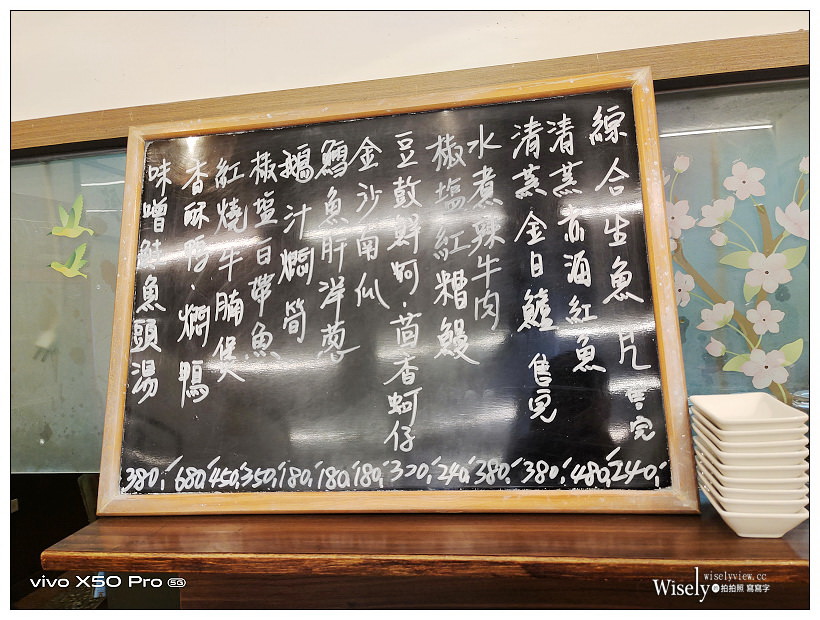 綜合生魚片 售完 240,-
清蒸 酒紅魚 480,-
清蒸金目鱸 售完 380,-
水煮辣牛肉 380,-
椒塩紅糟鰻 240,-
豆鼓鮮蚵.茴香蚵仔 320,-
金沙南瓜 180,-
鱈魚肝洋葱 180,-
鵝汁燜筍 180,-
椒塩白帶魚 350,-
紅燒牛腩煲 450,-
香酥鴨.燜鴨 680,-
味噌鮭魚頭湯 380,-
vivo X50 Pro 5G
Wisely wiselyview.cc
拍拍照 寫寫字